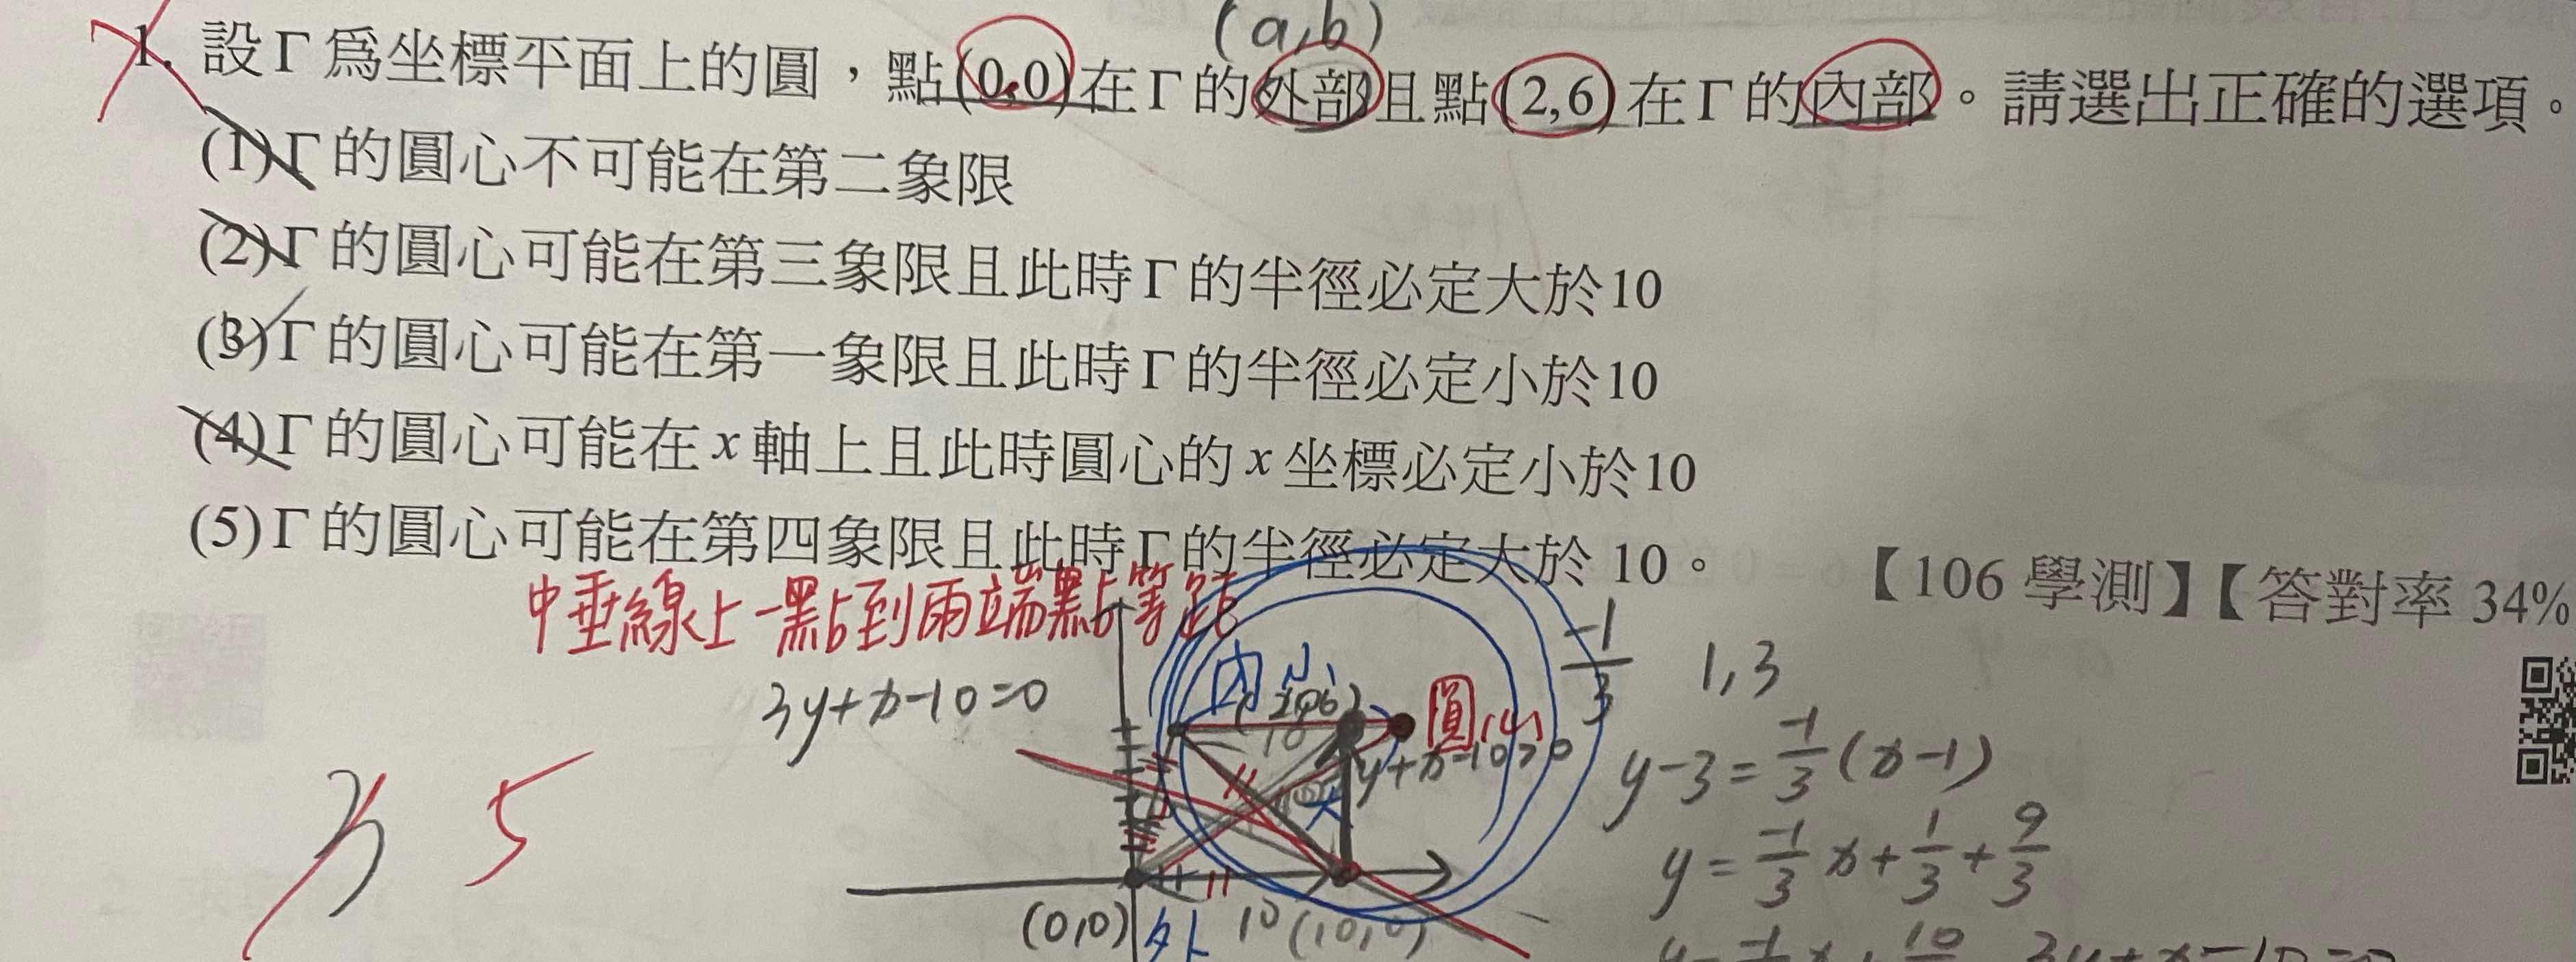 (a,b)
1. 設Γ為坐標平面上的圓，點(0,0)在Γ的外部且點(2,6)在Γ的內部。請選出正確的選項。
(1)Γ的圓心不可能在第二象限
(2)Γ的圓心可能在第三象限且此時Γ的半徑必定大於10
(3)Γ的圓心可能在第一象限且此時Γ的半徑必定小於10
(4)Γ的圓心可能在x軸上且此時圓心的x坐標必定小於10
(5)Γ的圓心可能在第四象限且此時Γ的半徑必定大於 10。
【106 學測】【答對率 34%
中垂線上一點到兩端點等距
3y+x-10=0
內小
圓心
y+x-10>0
大
-1/3
1,3
y-3=-1/3(x-1)
y=-1/3x+1/3+9/3
3
5
(0,0)
外
10
(10,0)
3y+x-10=0